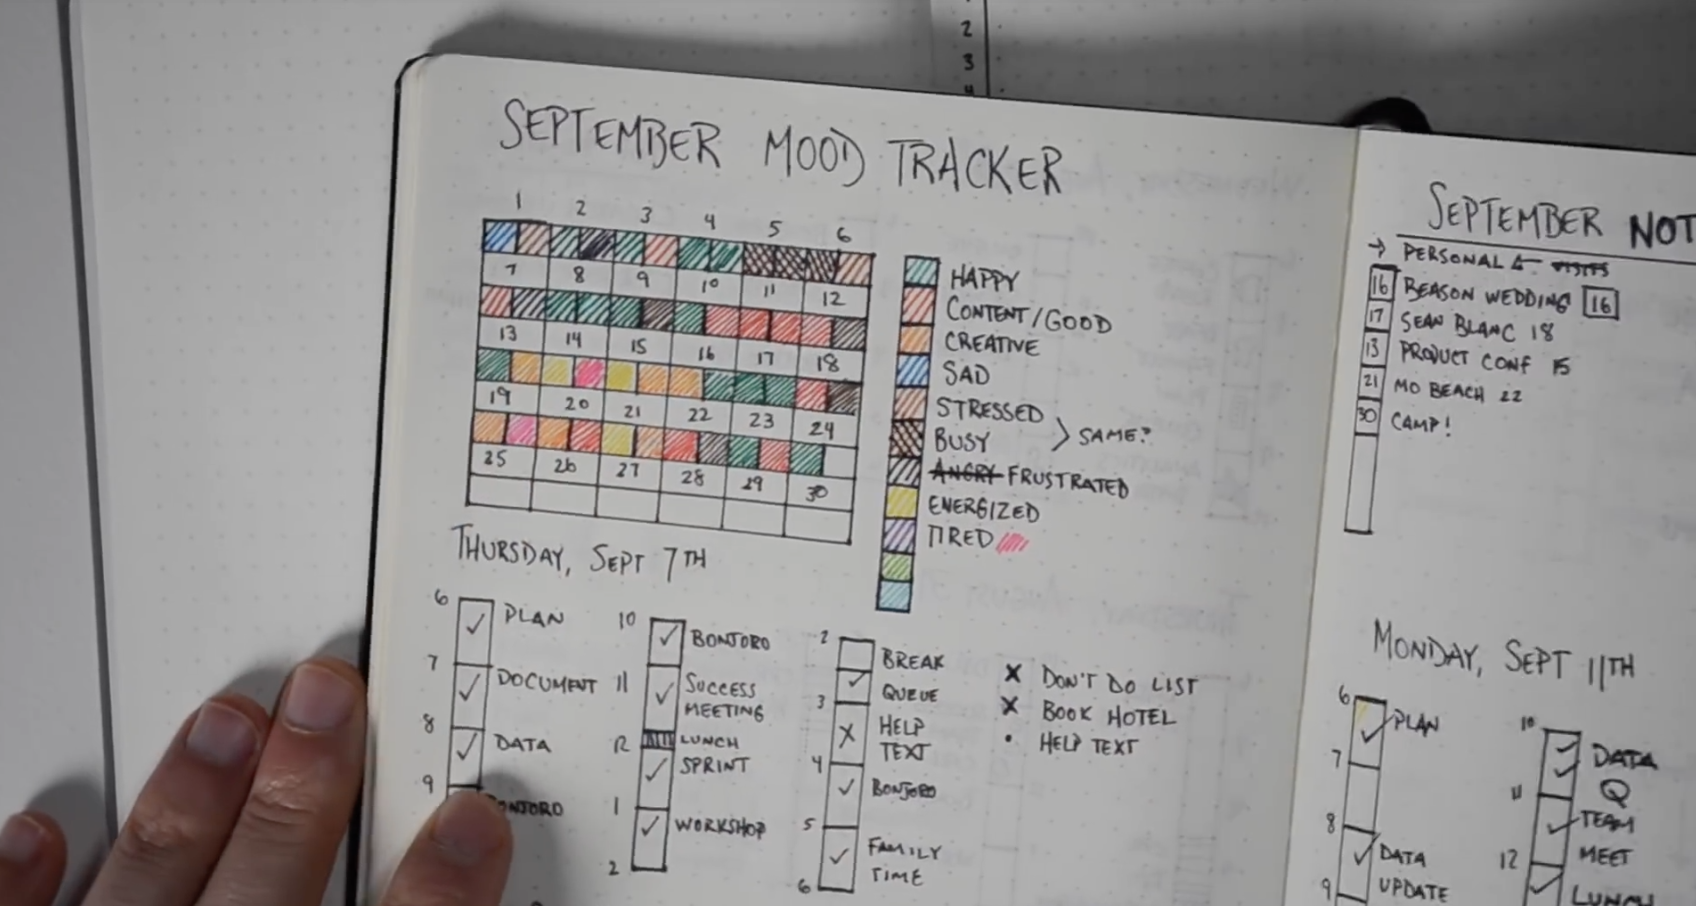 2
3
4
SEPTEMBER MOOD TRACKER
1 2 3 4 5 6
7 8 9 10 11 12
13 14 15 16 17 18
19 20 21 22 23 24
25 26 27 28 29 30
HAPPY
CONTENT/GOOD
CREATIVE
SAD
STRESSED
BUSY
SAME?
ANGRY FRUSTRATED
ENERGIZED
TIRED
THURSDAY, SEPT 7TH
6 PLAN
7 DOCUMENT
8 DATA
9 BONJORO
10 BONJORO
11 SUCCESS
MEETING
12 LUNCH
SPRINT
1 WORKSHOP
2
2 BREAK
QUEUE
3 HELP
TEXT
4 BONJORO
5 FAMILY
TIME
6
X DON'T DO LIST
X BOOK HOTEL
• HELP TEXT
SEPTEMBER NOT
→ PERSONAL
16 BEASON WEDDING 16
17 SEAN BLANC 18
13 PRODUCT CONF 15
21 MO BEACH 22
30 CAMP!
MONDAY, SEPT 11TH
6 PLAN
7
8 DATA
UPDATE
9
10 DATA
Q
11 TEAM
MEET
12 LUNCH